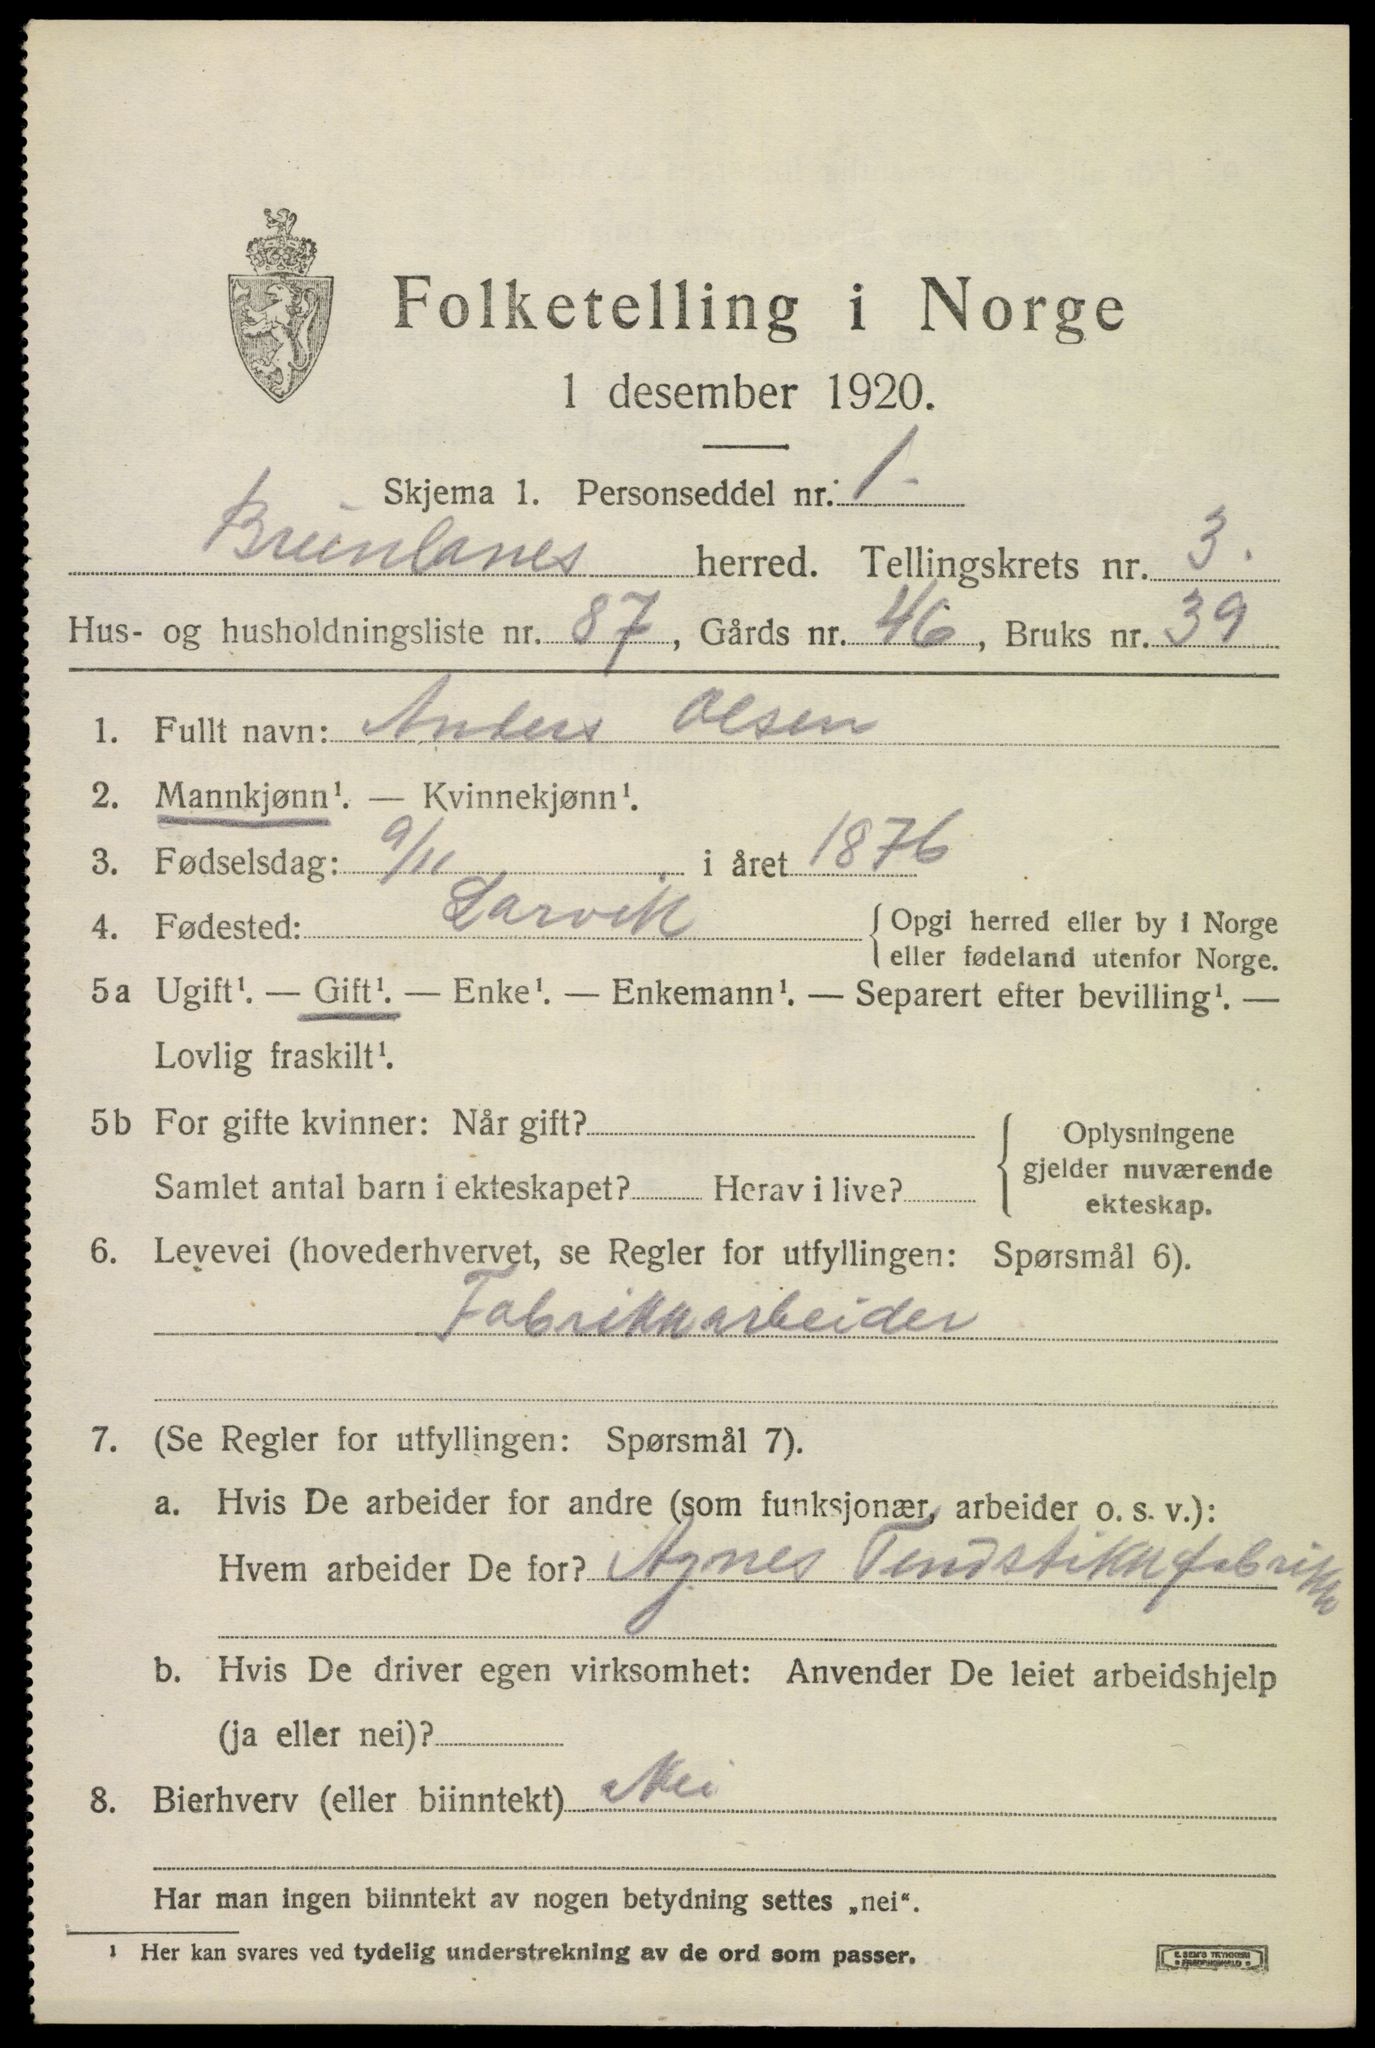 Folketelling i Norge
1 desember 1920.
Skjema 1. Personseddel nr. 1.
Brunlanes herred. Tellingskrets nr. 3.
Hus- og husholdningsliste nr. 87, Gårds nr. 46, Bruks nr. 39
1. Fullt navn: Anders Olsen
2. Mannkjønn¹. — Kvinnekjønn¹.
3. Fødselsdag: 9/11 i året 1876
4. Fødested: Larvik { Opgi herred eller by i Norge
eller fødeland utenfor Norge.
5a Ugift¹. — Gift¹. — Enke¹. — Enkemann¹. — Separert efter bevilling¹. —
Lovlig fraskilt¹.
5b For gifte kvinner: Når gift?
Samlet antal barn i ekteskapet? Herav i live?
{ Oplysningene
gjelder nuværende
ekteskap.
6. Levevei (hovederhvervet, se Regler for utfyllingen: Spørsmål 6).
Fabrikkarbeider
7. (Se Regler for utfyllingen: Spørsmål 7).
a. Hvis De arbeider for andre (som funksjonær, arbeider o. s. v.):
Hvem arbeider De for? Agnes Tendstikkfabrikk
b. Hvis De driver egen virksomhet: Anvender De leiet arbeidshjelp
(ja eller nei)?
8. Bierhverv (eller biinntekt) Nei
Har man ingen biinntekt av nogen betydning settes „nei“.
¹ Her kan svares ved tydelig understrekning av de ord som passer.